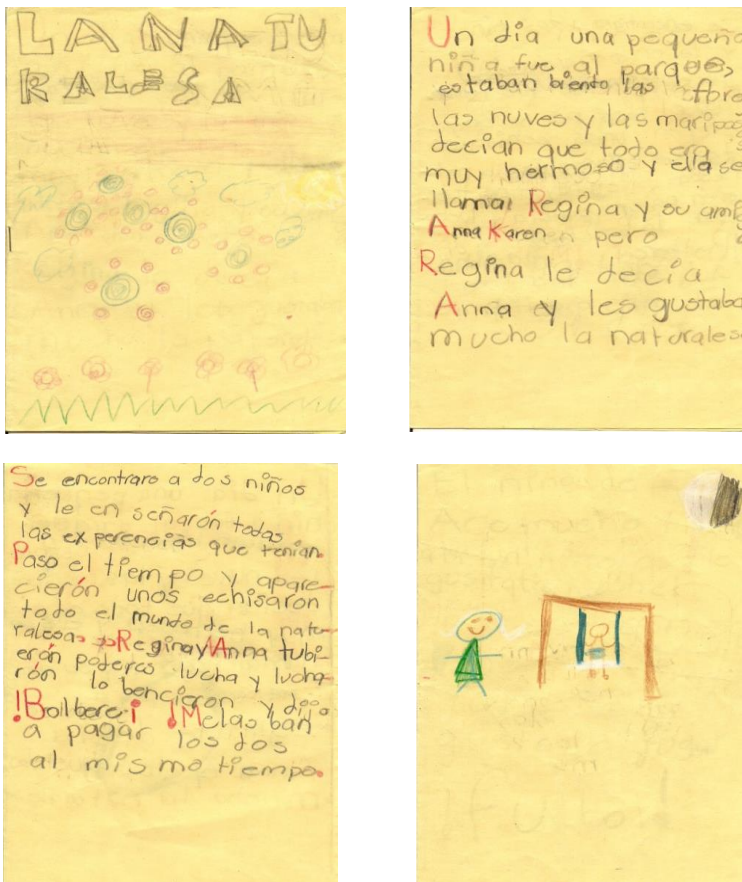 LA NATU
RALESA
Un dia una pequeña
niña fue al parque,
estaban biento las flore
las nuves y las maripo
decian que todo era
muy hermoso y ella se
llama Regina y su ami
Anna Karen pero
Regina le decía
Anna y les gustaba
mucho la naturales
Se encontraro a dos niños
y le en señarón todas
las experencias que tenian.
Paso el tiempo y apare-
cierón unos echisaron
todo el mundo de la natu-
ralesa. Regina y Anna tubi-
erón poderes lucha y lucha-
rón lo bencieron y dijo
¡Bolbere! ¡Melas ban
a pagar los dos
al mismo tiempo.